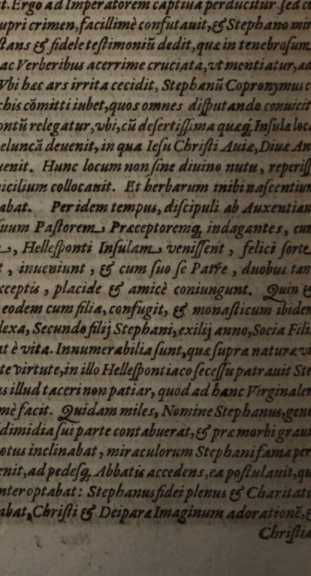 t. Ergo ad Imperatorem captiua perducitur, sed cū
upri crimen, facillimè confutauit, & Stephano mir
stans & fidele testimoniū dedit, quæ in tenebrosum
ac Verberibus acerrime cruciata, vt mentiatur, ad
Vbi hæc ars irrita cecidit, Stephanū Copronymus c
chis cōmitti iubet, quos omnes disputando conuicit
ontū relegatur, vbi, cū desertissima quæq; Insulæ loca
eluncā deuenit, in qua Iesu Christi Auiæ, Diuæ An
uenit. Hunc locum non sine diuino nutu, reperiss
icilium collocauit. Et herbarum inibi nascentium
abat. Per idem tempus, discipuli ab Auxentian
uum Pastorem, Præceptoremq; indagantes, cum
, Hellesponti Insulam venissent, felici forte
t, inueniunt, & cum suo se Patre, duobus tan
cceptis, placide & amicè coniungunt. Quin &
eodem cum filia, confugit, & monasticum ibidem
lexa, Secundo filij Stephani, exilij anno, Socia Fili
t è vita. Innumerabilia sunt, quæ supra naturæ vi
te virtute, in illo Hellespontiaco secessu patrauit Ste
us illud taceri non patiar, quod ad hanc Virginalem
mè facit. Quidam miles, Nomine Stephanus, genu
dimidia sui parte contabuerat, & præ morbi grau
otus inclinabat, miraculorum Stephani fama per
enit, ad pedesq; Abbatis accedens, ea postulauit, qu
nter optabat: Stephanus fidei plenus & Charitatis
abat, Christi & Deiparæ Imaginum adorationē, &
Christia